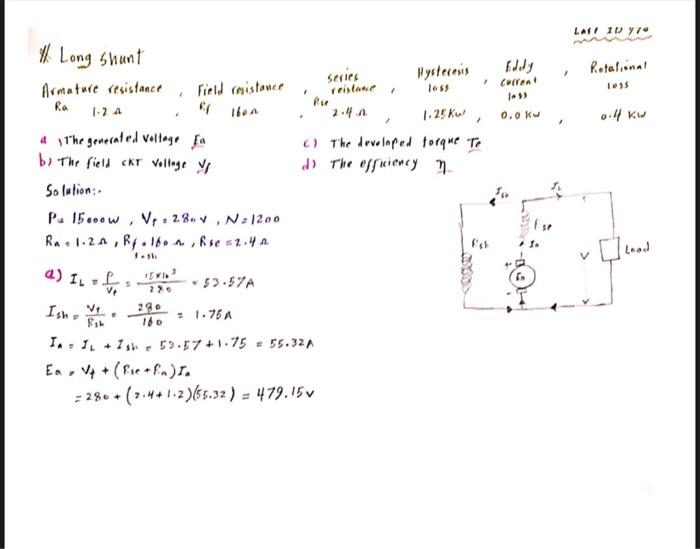 ⁑ Long shunt
Armature resistance , Field resistance , series reistance , Hysteresis loss , Eddy current loss , Rotational loss
Ra 1.2 Ω , Rf 160 Ω , Rse 2.4 Ω , 1.25 KW , 0.0 KW , 0.4 KW
a) The generated Voltage Ea
b) The field CKT Voltage Vf
c) The developed torque Te
d) The efficiency η
Solution:-
P = 15000 W , Vt = 280 V , N = 1200
Ra = 1.2 Ω , Rf = 160 Ω , Rse = 2.4 Ω
a) IL = P/Vt = 15x10³/280 = 53.57A
Ish = Vt/Rsh = 280/160 = 1.75A
Ia = IL + Ish = 53.57 + 1.75 = 55.32A
Ea = Vt + (Rse + Ra) Ia
= 280 + (2.4 + 1.2)(55.32) = 479.15 V
Ish
IL
Rsh
Ia
Ea
V
Load